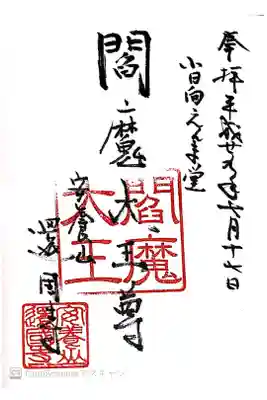 奉拝 平成廿九年六月十七日
小日向えんま堂
閻魔大王尊
安養山
還国寺
閻魔
大王
安養山
還國寺
CamScannerでスキャン